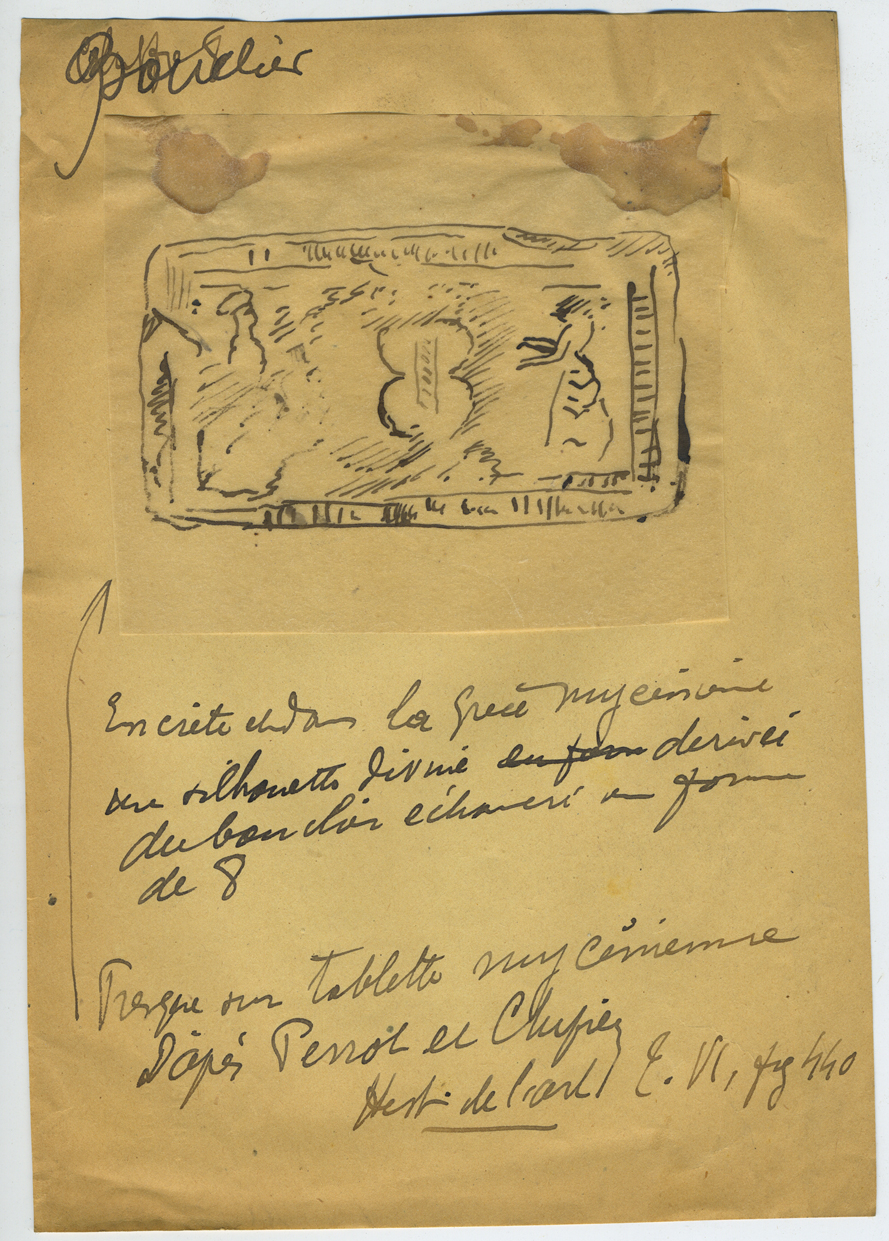 Bouclier
En crète et dans la Grèce mycénienne
une silhouette divine en form derivée
du bouclier échancré en forme
de 8
Fresque sur tablette mycénienne
D'après Perrot et Chipiez
Hist. de l'art T. VI, fig 440